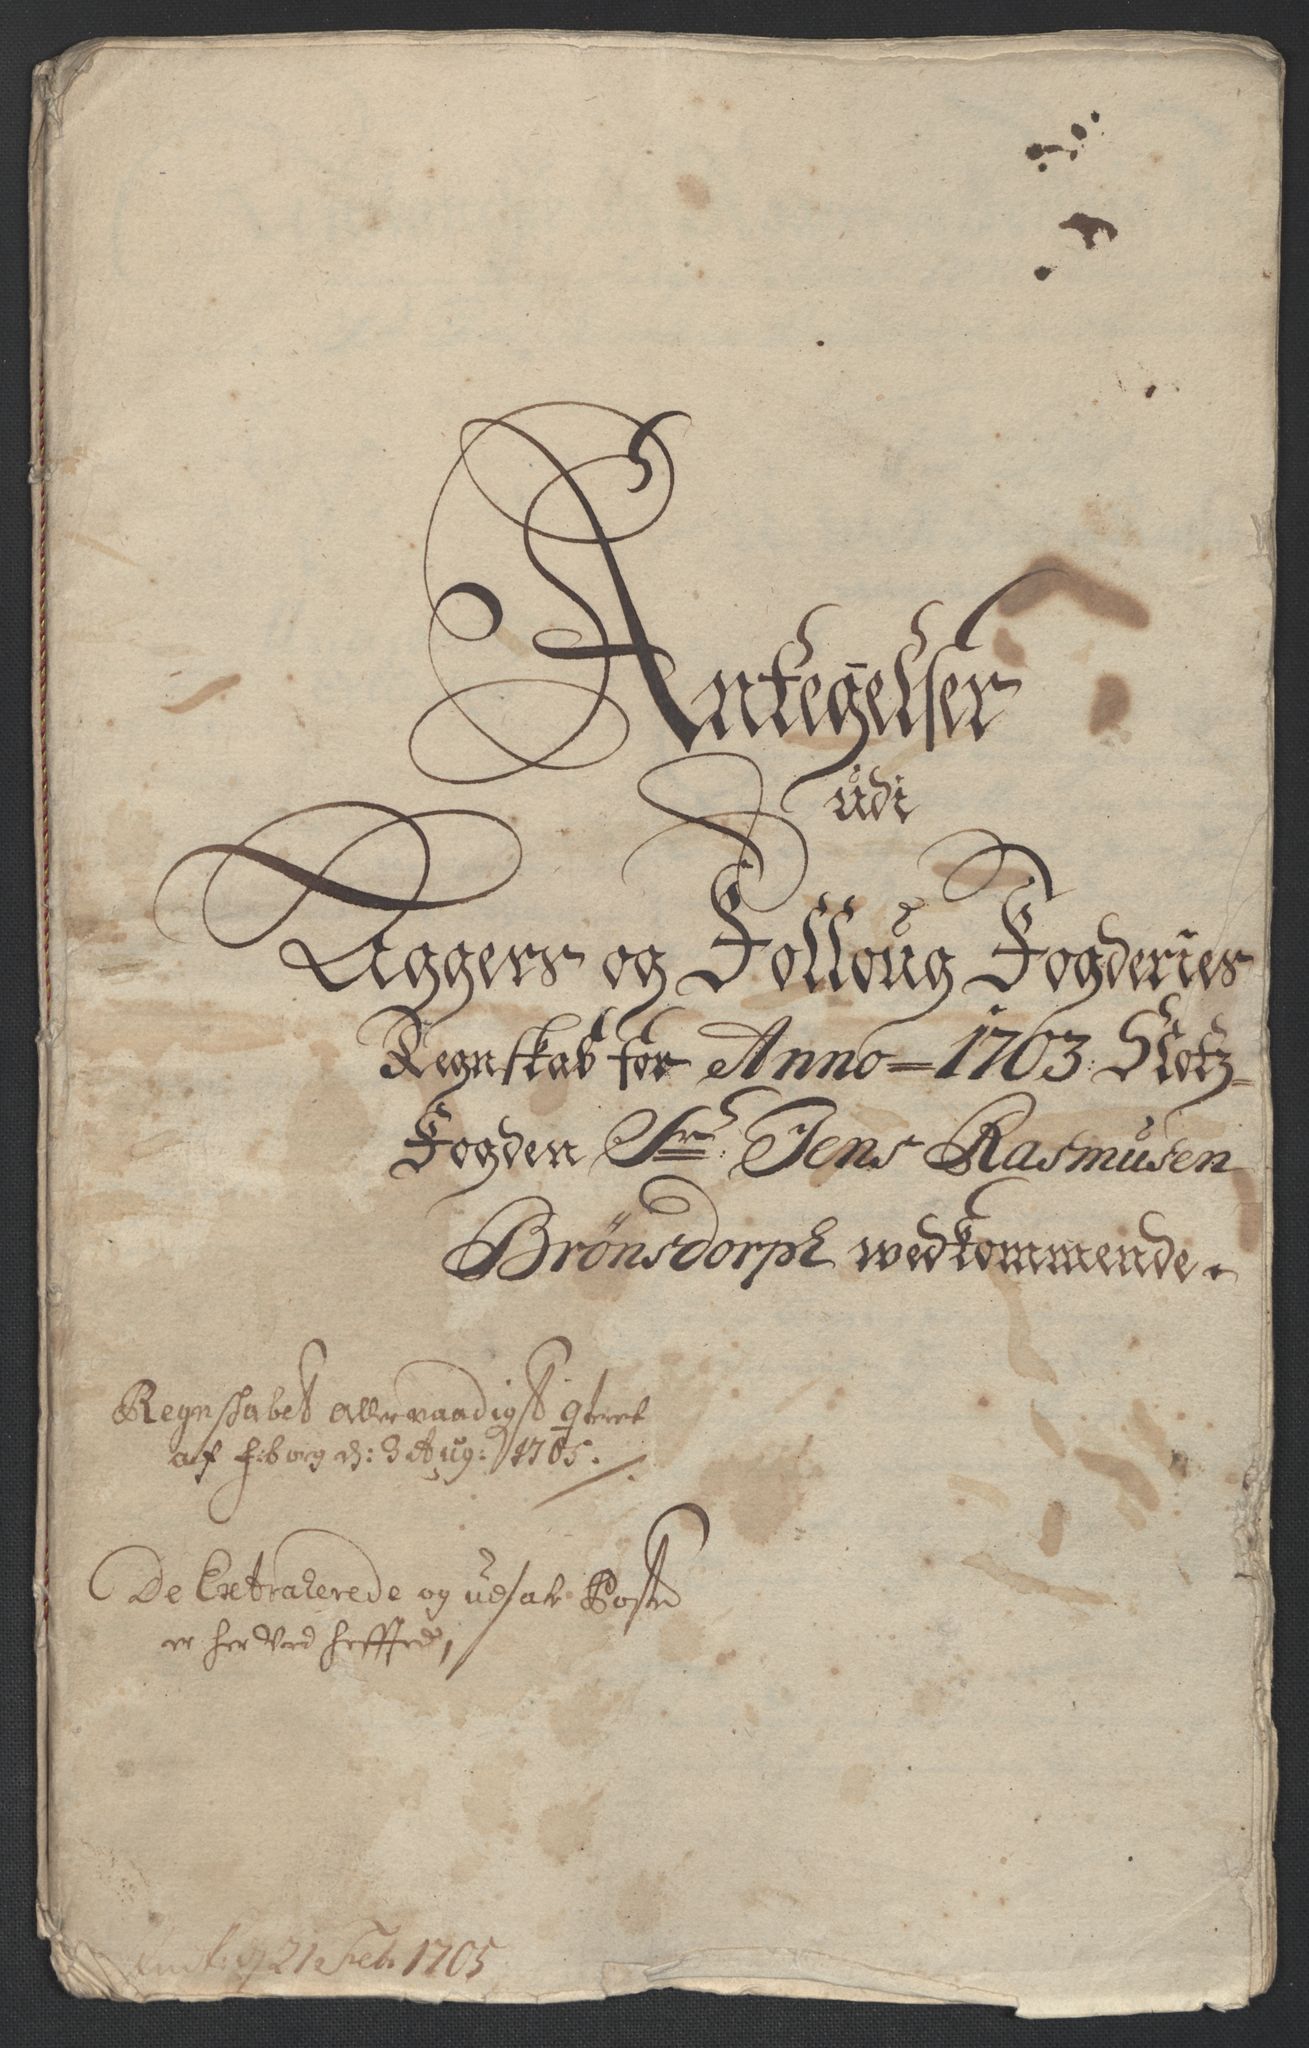 Antegelser
udi
Aggers og Folloug Fogderies
Regnskab for Anno 1703. Slotz-
Fogden Sr: Jens Rasmusen
Brönsdorph wedkommende.
Regnskabet allernaadigst qteret
af F:borg d: 3 Aug: 1705.
De Extraherede og udsatte Poster
er her ved hefftede,
d 21 Feb. 1705